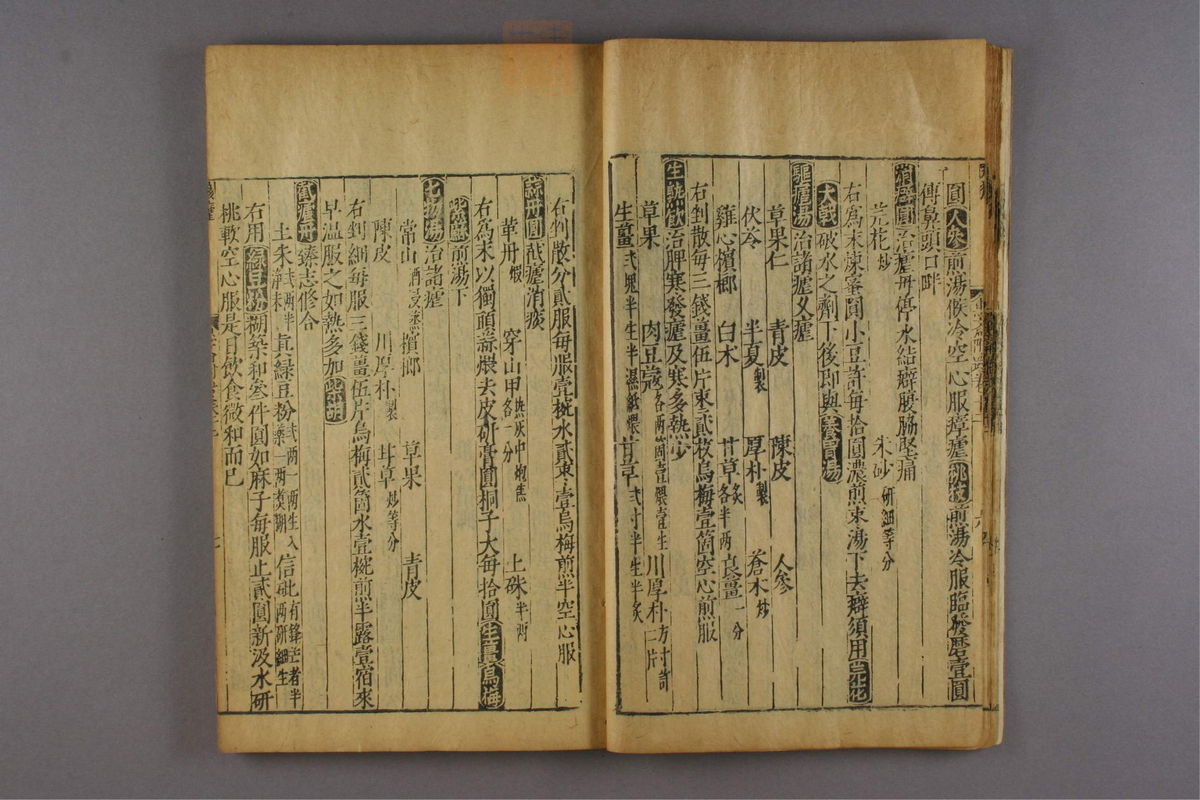 圓人參煎湯候冷空心服瘴瘧桃枝煎湯冷服臨發磨壹圓
傅鼻頭口畔
消癖圓治瘧母停水結癖腹脇堅痛
芫花炒 朱砂研細等分
右爲末煉蜜圓小豆許每拾圓濃煎棗湯下去癖須用芫花
大戟破水之劑下後即與養胃湯
驅瘧湯治諸瘧久瘧
草果仁 青皮 陳皮 人參
伏苓 半夏製 厚朴製 蒼木炒
雞心檳榔 白木 甘草炙各半兩 良薑一分
右剉散每三錢薑伍片棗貳枚烏梅壹箇空心煎服
生熟飲治脾寒發瘧及寒多熱少
草果 肉豆寇各兩箇壹煨壹生 川厚朴方寸許二片
生薑弍塊半生半濕紙煨 甘草弍寸半生半炙
右剉散分貳服每服壹椀水貳棗壹烏梅煎半空心服
蒜丹圓截瘧消痰
黃丹煅 穿山甲熱灰中炮焦各一分 上硃半兩
右爲末以獨頭蒜煨去皮研膏圓桐子大每拾圓生薑烏梅
紫蘇煎湯下
七物湯治諸瘧
常山酒浸蒸 檳榔 草果 青皮
陳皮 川厚朴製 甘草炒等分
右剉細每服三錢薑伍片烏梅貳箇水壹椀煎半露壹宿來
早温服之如熱多加柴胡
截瘧丹臻志修合
土朱弍兩半淨 真綠豆粉弍兩一兩生入藥一兩煑糊 信砒有鋒芒者半兩研細生
右用綠豆粉糊築和叁件圓如麻子每服止貳圓新汲水研
桃軟空心服是日飲食微和而已